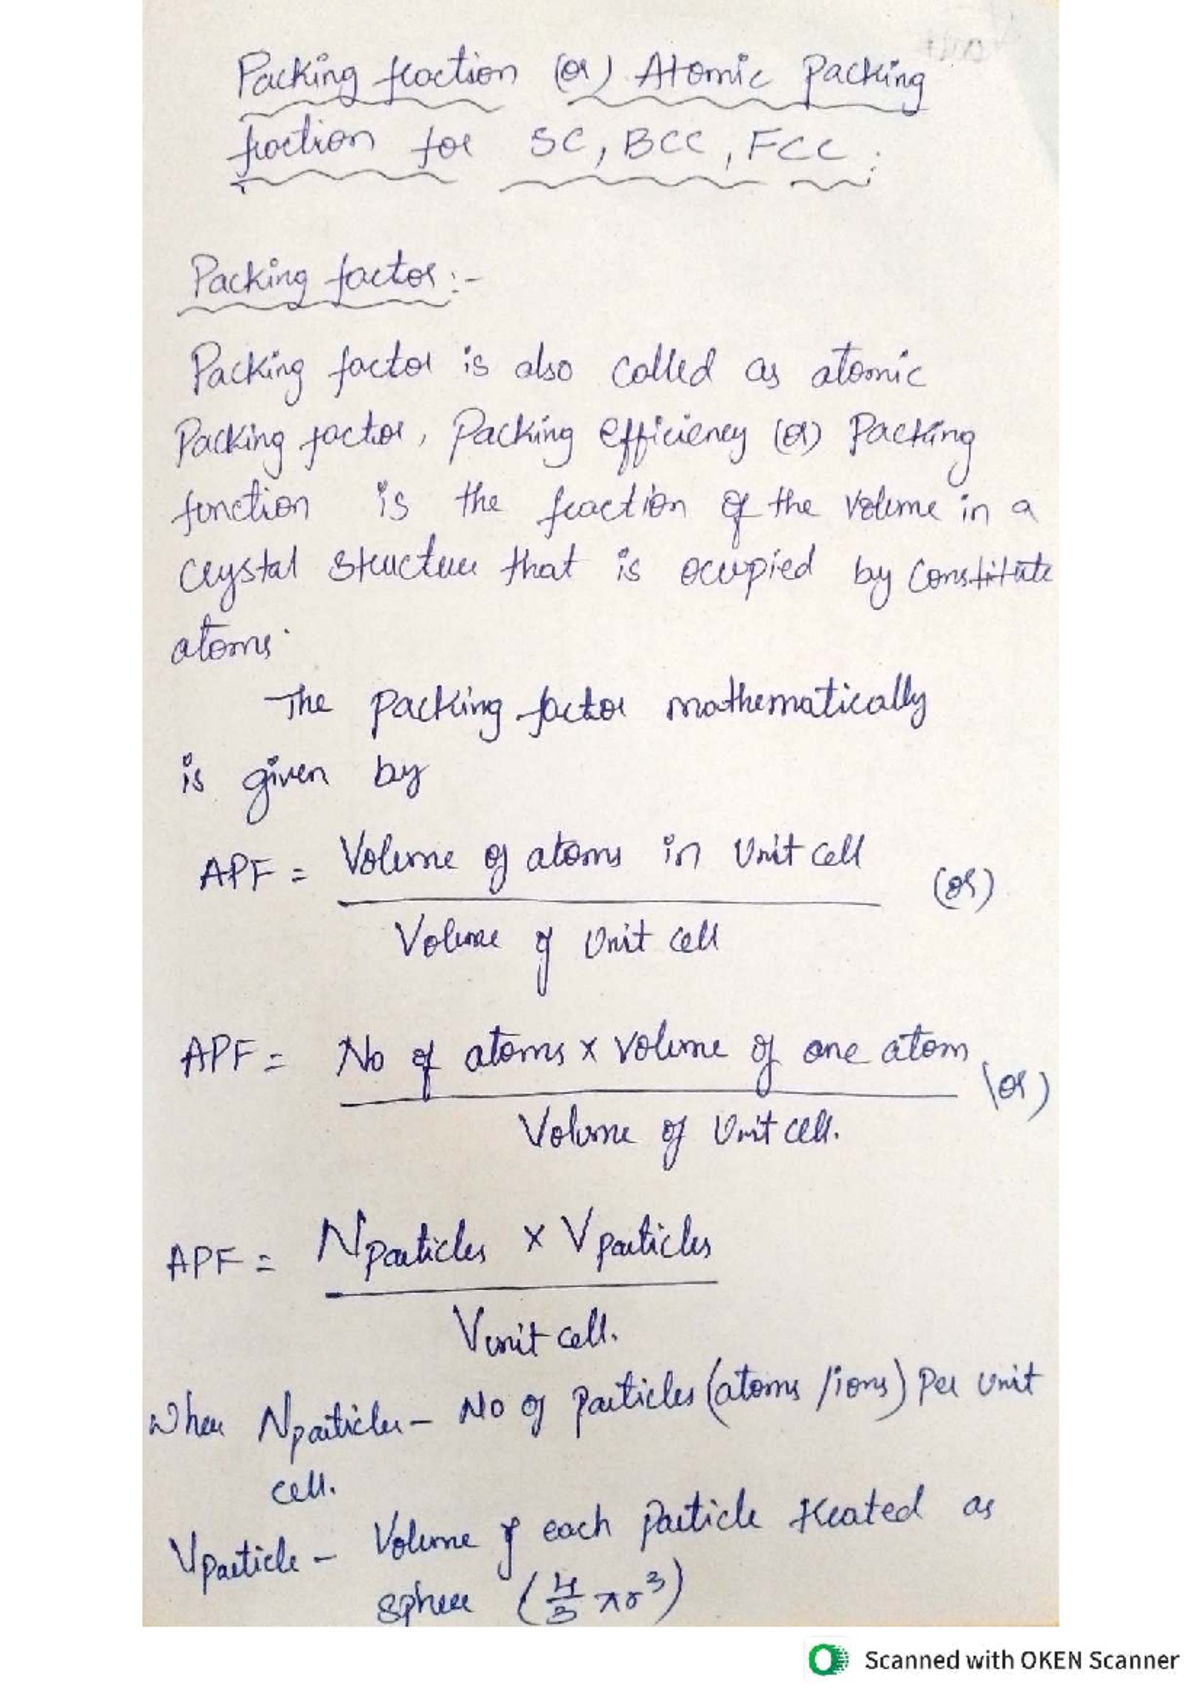 Packing fraction (or) Atomic Packing
fraction for SC, BCC, FCC:
Packing factor:-
Packing factor is also called as atomic
Packing factor, Packing efficiency (or) Packing
function is the fraction of the volume in a
crystal structure that is occupied by Constitute
atoms.
The packing factor mathematically
is given by
APF = Volume of atoms in Unit cell / Volume of Unit cell (or)
APF = No of atoms x Volume of one atom / Volume of Unit cell. (or)
APF = Nparticles x Vparticles / Vunit cell.
When Nparticles - No of particles (atoms /ions) Per unit
cell.
Vparticle - Volume of each Particle treated as
sphere (4/3 πr³)
Scanned with OKEN Scanner